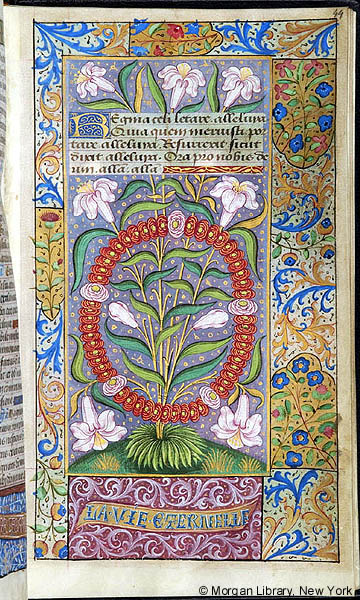 49
Regina celi letare allelura
Quia quem meruisti por
tare allelura. Resurexit sicut
dixit allelura. Ora pro nobis de
um alla. alla.
LA VIE ETERNELLE
© Morgan Library, New York